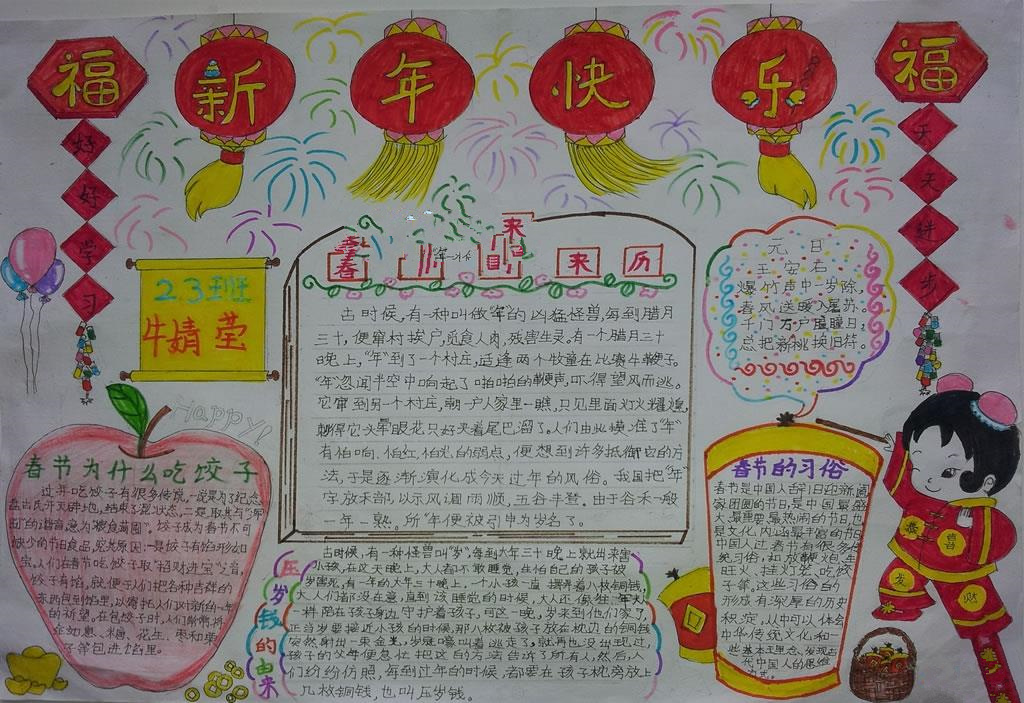 福
新年快乐
福
好好学习
天天进步
2.3班
牛婧莹
春
来
来历
古时候,有一种叫做"年"的凶猛怪兽,每到腊月
三十,便窜村挨户,觅食人肉,残害生灵。有一个腊月三十
晚上,"年"到了一个村庄,适逢两个牧童在比赛牛鞭子。
"年"忽闻半空中响起了啪啪的鞭声,吓得望风而逃。
它窜到另一个村庄,朝一户人家里一瞧,只见里面灯火辉煌,
刺得它头晕眼花只好夹着尾巴溜了。人们由此摸准了"年"
有怕响、怕红、怕光的弱点,便想到许多抵御它的方
法,于是逐渐演化成今天过年的风俗。我国把"年"
字放禾部,以示风调雨顺,五谷丰登。由于谷禾一般
一年一熟。所"年"便被引申为岁名了。
元日
王安石
爆竹声中一岁除,
春风送暖入屠苏。
千门万户曈曈日,
总把新桃换旧符。
Happy!
春节为什么吃饺子
过年吃饺子有很多传说,一说是为了纪念
盘古氏开天辟地,结束了混状态,二是取其与
的谐音,意为
缺少的节日食品,究其原因:一是饺子有馅形如元
宝,人们在春节吃饺子取"招财进宝"之音,
饺子有馅,就便于人们把各种吉祥的
东西包到馅里,以寄托人们对新的一年
的祈望。在包饺子时,人们常常将
金如意、糖、花生、枣和栗
子等包进馅里。
压岁钱的由来
古时候,有一种怪兽叫"岁",每到大年三十晚上就出来害
小孩,在这天晚上,大人都不敢睡觉,在怕自己的孩子被
岁害死,有一年的大年三十晚上,一个小孩一直摆弄着八枚铜钱,
大人们都没在意,直到该睡觉的时候,大人还像往年
一样陪在孩子身边守护着孩子,可这一晚,岁来到他们家了,
正当岁要接近小孩的时候,那八枚被孩子放在枕边的铜钱
突然射出一束金光,岁
孩子的父母便急忙把这个方法告诉了所有人,然后人
们纷纷仿照,每到过年的时候,都要在孩子枕旁放上
几枚铜钱,也叫压岁钱。
春节的习俗
春节是中国人
家团圆的节日,是中国最盛
大、最重要、最热闹的节日,也
是文化内涵最丰富的节日
中国人过春节有很多传
统习俗,如放鞭炮、包
吃饺
子等。这些习俗各自的
形成有深厚的历史
积淀,从中可以体会
中华传统文化和一
些基本理念,发现古
代中国人的思维
方式。
恭喜
发财